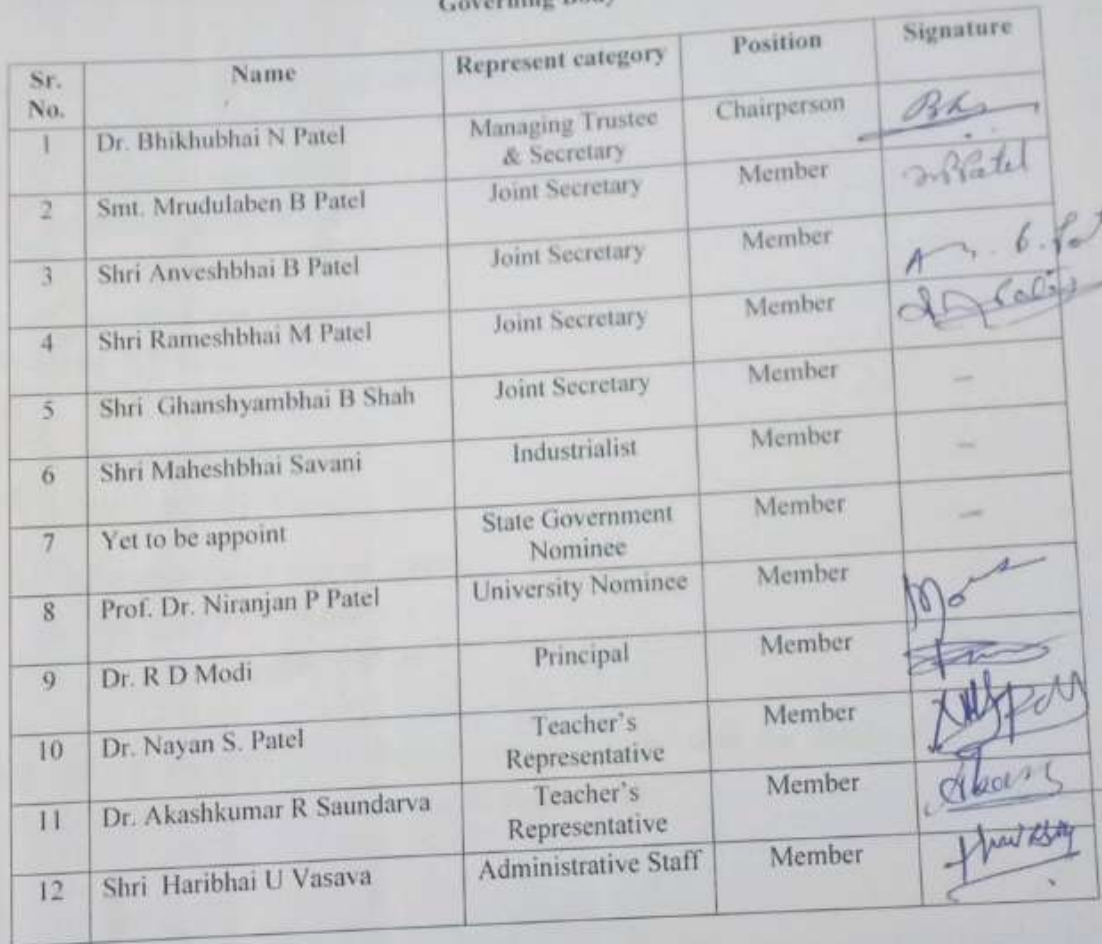 Governing Body
Sr. No. Name Represent category Position Signature
1 Dr. Bhikhubhai N Patel Managing Trustee & Secretary Chairperson
2 Smt. Mrudulaben B Patel Joint Secretary Member Patel
3 Shri Anveshbhai B Patel Joint Secretary Member
4 Shri Rameshbhai M Patel Joint Secretary Member
5 Shri Ghanshyambhai B Shah Joint Secretary Member –
6 Shri Maheshbhai Savani Industrialist Member –
7 Yet to be appoint State Government Nominee Member –
8 Prof. Dr. Niranjan P Patel University Nominee Member
9 Dr. R D Modi Principal Member
10 Dr. Nayan S. Patel Teacher's Representative Member
11 Dr. Akashkumar R Saundarva Teacher's Representative Member
12 Shri Haribhai U Vasava Administrative Staff Member